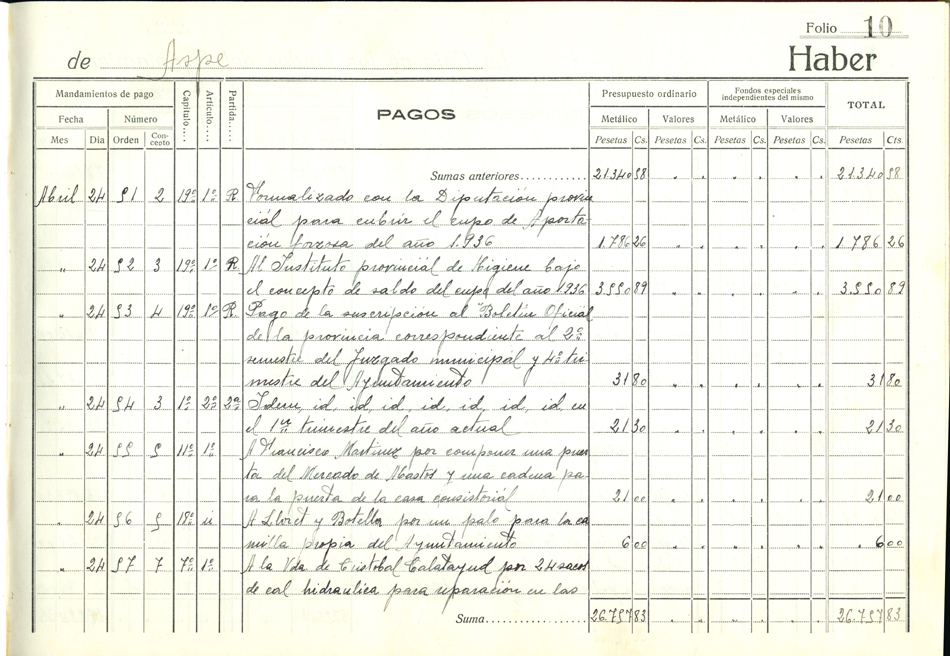 Folio 10
de Aspe Haber
Mandamientos de pago Capítulo.... Artículo.... Partida..... PAGOS Presupuesto ordinario Fondos especiales independientes del mismo TOTAL
Fecha Número Metálico Valores Metálico Valores
Mes Día Orden Concepto Pesetas Cs. Pesetas Cs. Pesetas Cs. Pesetas Cs. Pesetas Cts.
Sumas anteriores............ 21.340 58 21.340 58
Abril 24 51 2 19º 1º R. Formalizado con la Diputación provin
cial para cubrir el cupo de Aporta-
ción forzosa del año 1.936 1.786 26 " " " " " " 1.786 26
" 24 52 3 19º 1º R. Al Instituto provincial de Higiene bajo
el concepto de saldo del cupo del año 1936 3.550 89 " " " " " " 3.550 89
" 24 53 4 19º 1º R. Pago de la suscripción al "Boletín Oficial
de la provincia correspondiente al 2º
semestre del Juzgado municipal y 4º tri-
mestre del Ayuntamiento 31 80 " " " " " " 31 80
" 24 54 3 1º 2º 2ª Idem, id, id, id, id, id, id, id en
el 1er trimestre del año actual 21 30 " " " " " " 21 30
" 24 55 5 11º 1º A Francisco Martinez por componer una puer
ta del Mercado de Abastos y una cadena pa-
ra la puerta de la casa consistorial 21 00 " " " " " " 21 00
" 24 56 5 18º ú A Lloret y Botella por un palo para la ca
milla propia del Ayuntamiento 6 00 " " " " " " 6 00
" 24 57 7 7º 1º A la Vda de Cristobal Calatayud por 24 sacos
de cal hidraulica para reparación en las
Suma...................... 26.757 83 26.757 83